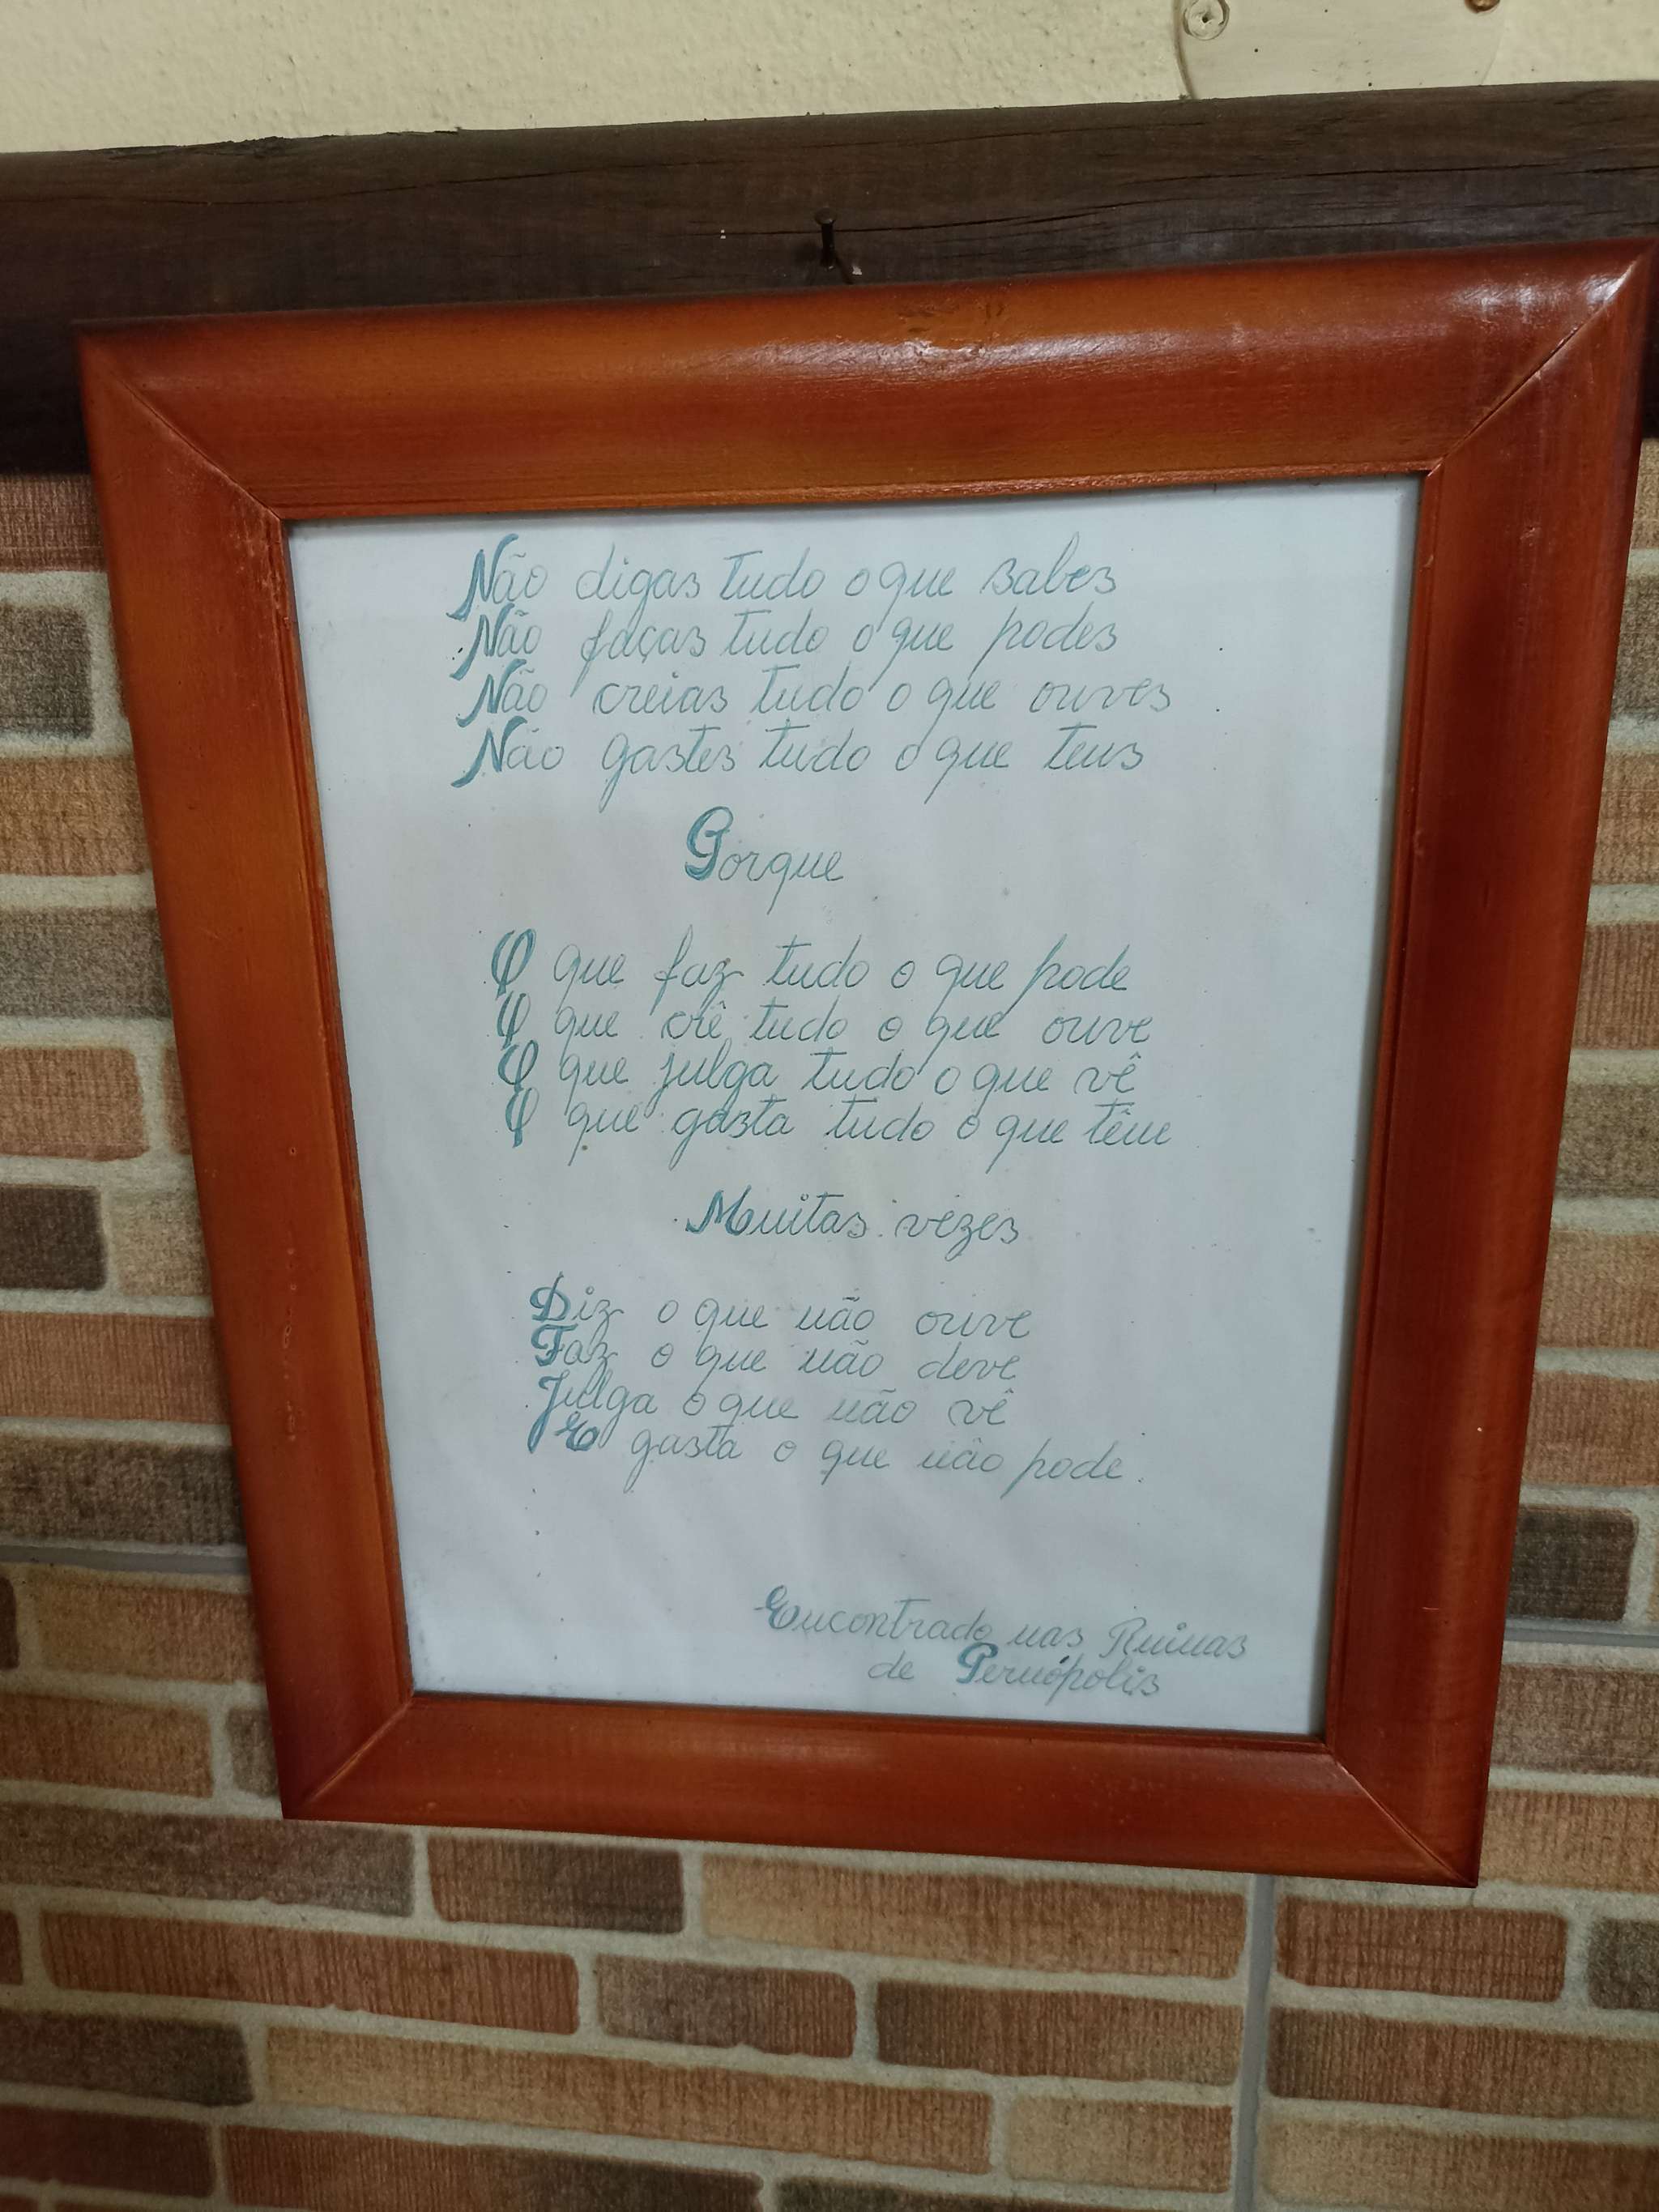 Não digas tudo o que sabes
Não faças tudo o que podes
Não creias tudo o que ouves
Não gastes tudo o que tens
Porque
O que faz tudo o que pode
O que crê tudo o que ouve
O que julga tudo o que vê
O que gasta tudo o que têm
Muitas vezes
Diz o que não ouve
Faz o que não deve
Julga o que não vê
E gasta o que não pode.
Encontrado nas Ruinas
de Pernópolis